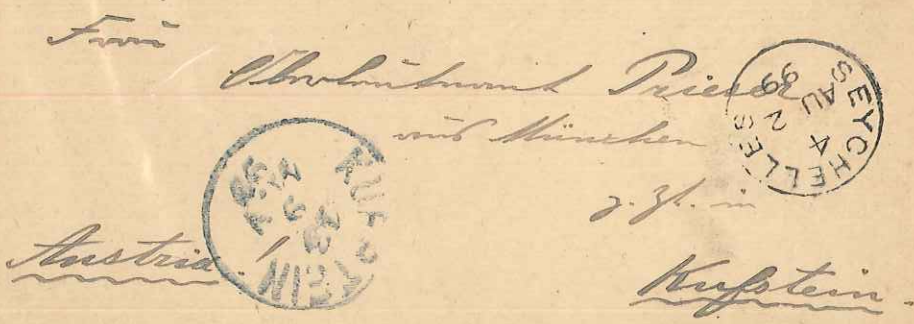 Frau
Oberleutnant Prieser
aus München
z. Zt. in
Kufstein.
Austria!
SEYCHELLES
AU 24
99
KUFSTEIN